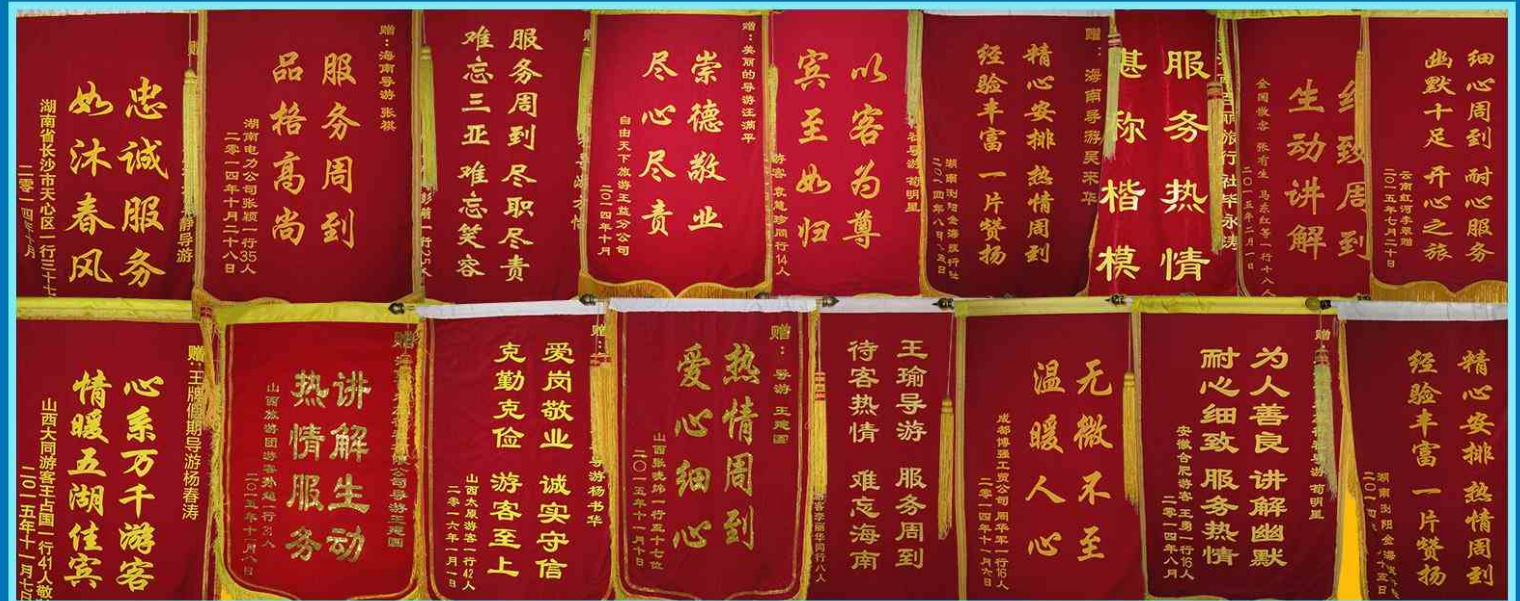 忠诚服务
如沐春风
湖南省长沙市天心区一行三十七
二零一四年十月
赠：海南导游 张祺
服务周到
品格高尚
湖南电力公司张颖一行35人
二零一四年十月二十八日
服务周到 尽职尽责
难忘三亚 难忘笑容
赠：美丽的导游汪满平
崇德敬业
尽心尽责
自由天下旅游王益分公司
二零一四年十月
以客为尊
宾至如归
游客 袁慧珍同行14人
赠：海南导游吴来华
精心安排 热情周到
经验丰富 一片赞扬
服务热情
堪称楷模
细致周到
生动讲解
全国散客 张有生 马永红等一行十八人
二〇一五年二月一日
细心周到 耐心服务
幽默十足 开心之旅
云南红河李翠赠
二〇一五年七月二十日
赠：王牌假期导游杨春涛
心系万千游客
情暖五湖佳宾
山西大同游客王占国一行41人敬
二〇一五年十一月七日
讲解生动
热情服务
山西旅游团游客孙超一行31人
二〇一五年十一月八日
爱岗敬业 诚实守信
克勤克俭 游客至上
山西太原游客一行42人
二零一六年一月一日
赠：导游 王建国
热情周到
爱心细心
二〇一五年十一月十日
王瑜导游 服务周到
待客热情 难忘海南
客李丽华同行八人
无微不至
温暖人心
成都博强工贸公司 周华军一行16人
二零一四年十一月六日
为人善良 讲解幽默
耐心细致 服务热情
安徽合肥游客 王勇一行16人
二零一四年八月
精心安排 热情周到
经验丰富 一片赞扬